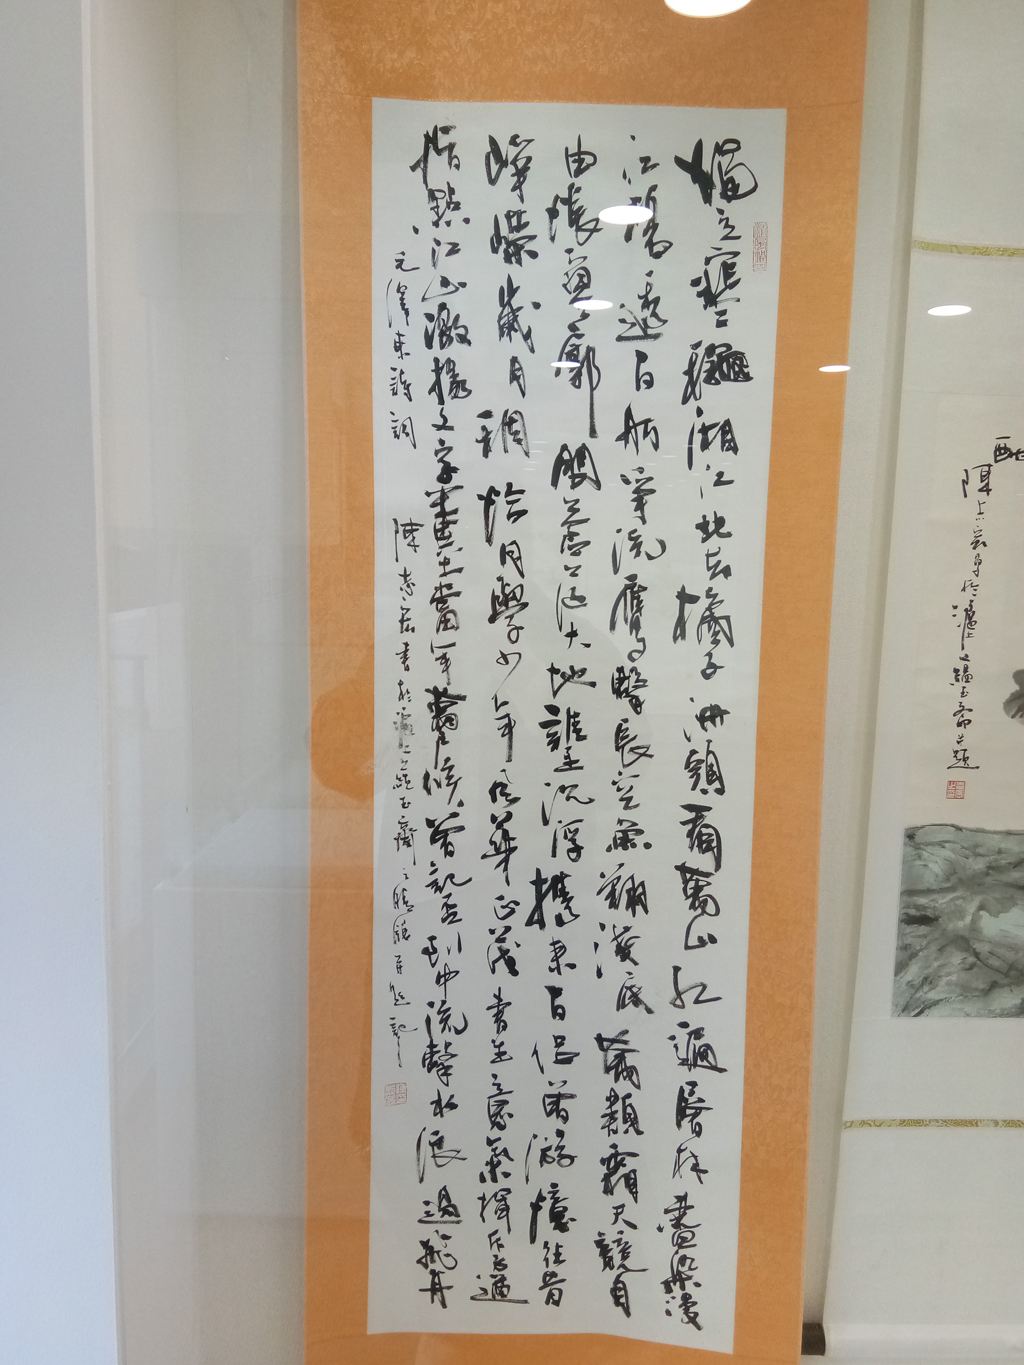 獨立寒秋湘江北去橘子洲頭看萬山紅遍層林盡染漫
江碧透百舸爭流鷹擊長空魚翔淺底萬類霜天競自
由悵寥廓問蒼茫大地誰主沉浮攜來百侶曾游憶往昔
崢嶸歲月稠恰同學少年風華正茂書生意氣揮斥方遒
指點江山激揚文字糞土當年萬戶侯曾記否到中流擊水浪遏飛舟
毛澤東詩詞 陳志宏書於滬上蘊玉齋之晴窗并題記
陳志宏于滬上蘊玉斋并題